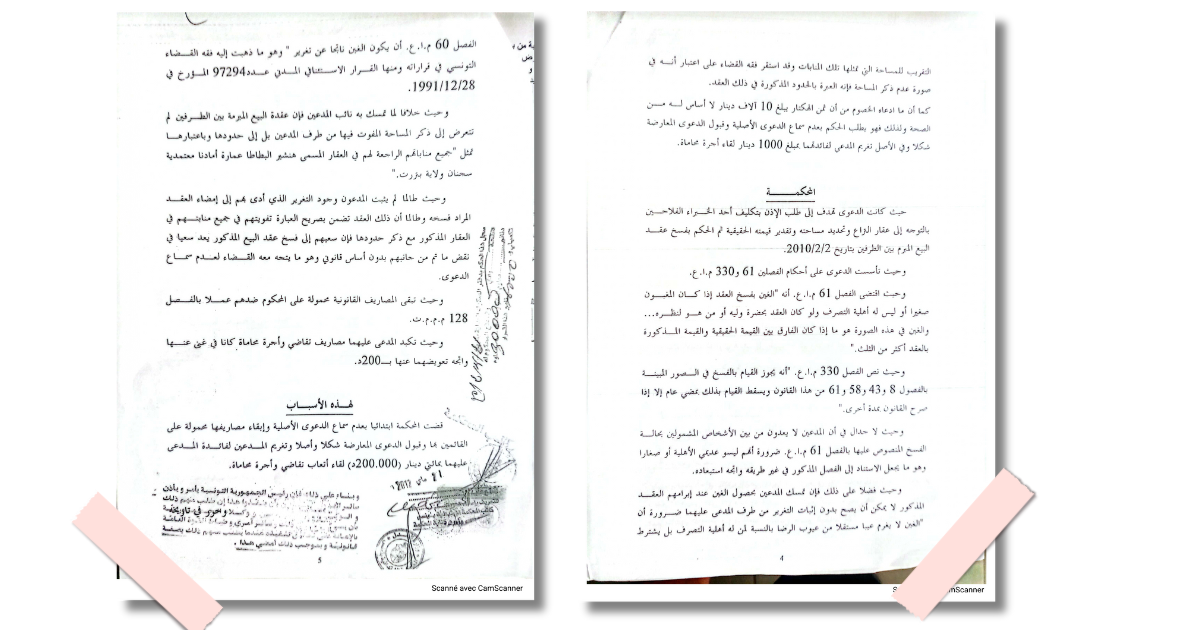 التقريب للمساحة التي تمثلها تلك المنابات وقد استقر فقه القضاء على اعتبار أنـــه في
صورة عدم ذكر المساحة فإنه العبرة بالحدود المذكورة في ذلك العقد.
كما أن ما ادعاه الخصوم من أن ثمن الهكتار يبلغ 10 آلاف دينار لا أساس لـــه مـــن
الصحة ولذلك فهو يطلب الحكم بعدم سماع الدعوى الأصلية وقبول الدعوى المعارضة
شكلا وفي الأصل تغريم المدعى لفائدتهما بمبلغ 1000 دينار لقاء أجرة محاماة.
المحكمـــــة
حيث كانت الدعوى تهدف إلى طلب الإذن بتكليف أحد الخـــبراء الفلاحـــين
بالتوجه إلى عقار النزاع وتحديد مساحته وتقدير قيمته الحقيقية ثم الحكم بفسخ عقـــد
البيع المبرم بين الطرفين بتاريخ 2010/2/2.
وحيث تأسست الدعوى على أحكام الفصلين 61 و330 م.ا.ع.
وحيث اقتضى الفصل 61 م.ا.ع. أنه "الغبن يفسخ العقد إذا كـــان المغبـــون
صغيرا أو ليس له أهلية التصرف ولو كان العقد بحضرة وليه أو من هـــو لنظـــره...
والغبن في هذه الصورة هو ما إذا كان الفارق بين القيمة الحقيقية والقيمة المـــذكورة
بالعقد أكثر من الثلث."
وحيث نص الفصل 330 م.ا.ع. "أنه يجوز القيام بالفسخ في الـــصور المبينـــة
بالفصول 8 و43 و58 و61 من هذا القانون ويسقط القيام بذلك بمضي عام إلا إذا
صرح القانون بمدة أخرى."
وحيث لا جدال في أن المدعين لا يعدون من بين الأشخاص المشمولين بحالـــة
الفسخ المنصوص عليها بالفصل 61 م.ا.ع. ضرورة أنهم ليسو عديمي الأهلية أو صغارا
وهو ما يجعل الاستناد إلى الفصل المذكور في غير طريقه واتجه استبعاده.
وحيث فضلا على ذلك فإن تمسك المدعين بحصول الغبن عند إبرامهم العقـــد
المذكور لا يمكن أن يصح بدون إثبات التغرير من طرف المدعى عليهما ضـــرورة أن
"الغبن لا يعزم عيبا مستقلا من عيوب الرضا بالنسبة لمن له أهلية التصرف بل يشترط
4
الفصل 60 م.ا.ع. أن يكون الغبن ناتجا عن تغرير " وهو ما ذهبت إليه فقه القـــضاء
التونسي في قراراته ومنها القـــرار الاســـتئنافي المـــدني عـــدد97294 المـــؤرخ في
1991/12/28.
وحيث خلافا لما تمسك به نائب المدعين فإن عقدة البيع المبرمة بين الطـــرفين لم
تتعرض إلى ذكر المساحة المفوت فيها من طرف المدعين بل إلى حدودها وباعتبارهـــا
تمثل "جميع مناباتهم الراجعة لهم في العقار المسمى هنشير البطاطا عمارة أمادنا معتمدية
سجنان ولاية بنزرت."
وحيث طالما لم يثبت المدعون وجود التغرير الذي أدى بهم إلى إمضاء العقـــد
المراد فسخه وطالما أن ذلك العقد تضمن بصريح العبارة تفويتهم في جميع منابتـــهم في
العقار المذكور مع ذكر حدودها فإن سعيهم إلى فسخ عقد البيع المذكور يعد سعيا في
نقض ما تم من جانبهم بدون أساس قانوني وهو ما يتجه معه القـــضاء لعـــدم سمـــاع
الدعوى.
وحيث تبقى المصاريف القانونية محمولة على المحكوم ضدهم عمـــلا بالفـــصل
128 م.م.م.ت.
وحيث تكبد المدعى عليهما مصاريف تقاضي وأجرة محاماة كانا في غنى عنـــها
واتجه تعويضهما عنها بـــ200د.
لهـــذه الأسبـــاب
قضت المحكمة ابتدائيا بعدم سماع الدعوى الأصلية وإبقاء مصاريفها محمولة على
القائمين بها وقبول الدعوى المعارضة شكلا وأصلا وتغريم المـــدعين لفائـــدة المـــدعى
عليهما بمائتي دينار (200.000د) لقاء أتعاب تقاضي وأجرة محاماة.
وبنـــاء على ذلك فإن رئيس الجمهورية التونسية يأمر ويأذن
5
Scanné avec CamScanner
CamScanner